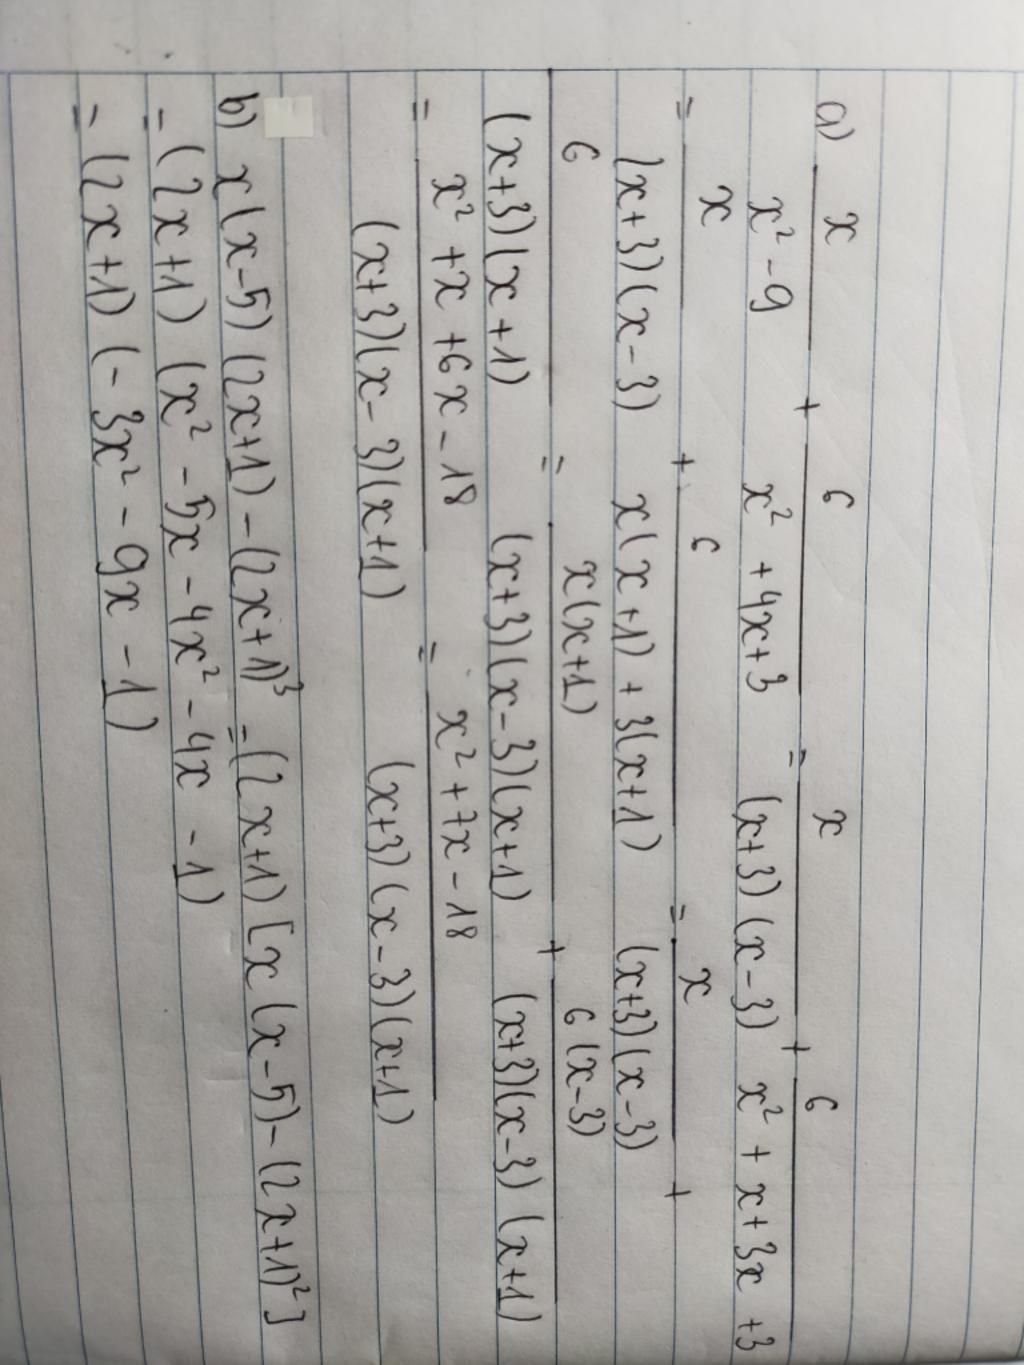 a) x/(x² - 9) + 6/(x² + 4x + 3) = x/((x+3)(x-3)) + 6/(x² + x + 3x + 3)
= x/((x+3)(x-3)) + 6/(x(x+1) + 3(x+1)) = x/((x+3)(x-3)) +
6/((x+3)(x+1)) = x(x+1)/((x+3)(x-3)(x+1)) + 6(x-3)/((x+3)(x-3)(x+1))
= (x² + x + 6x - 18)/((x+3)(x-3)(x+1)) = (x² + 7x - 18)/((x+3)(x-3)(x+1))
b) x(x-5)(2x+1) - (2x+1)³ = (2x+1)[x(x-5) - (2x+1)²]
= (2x+1)(x² - 5x - 4x² - 4x - 1)
= (2x+1)(-3x² - 9x - 1)